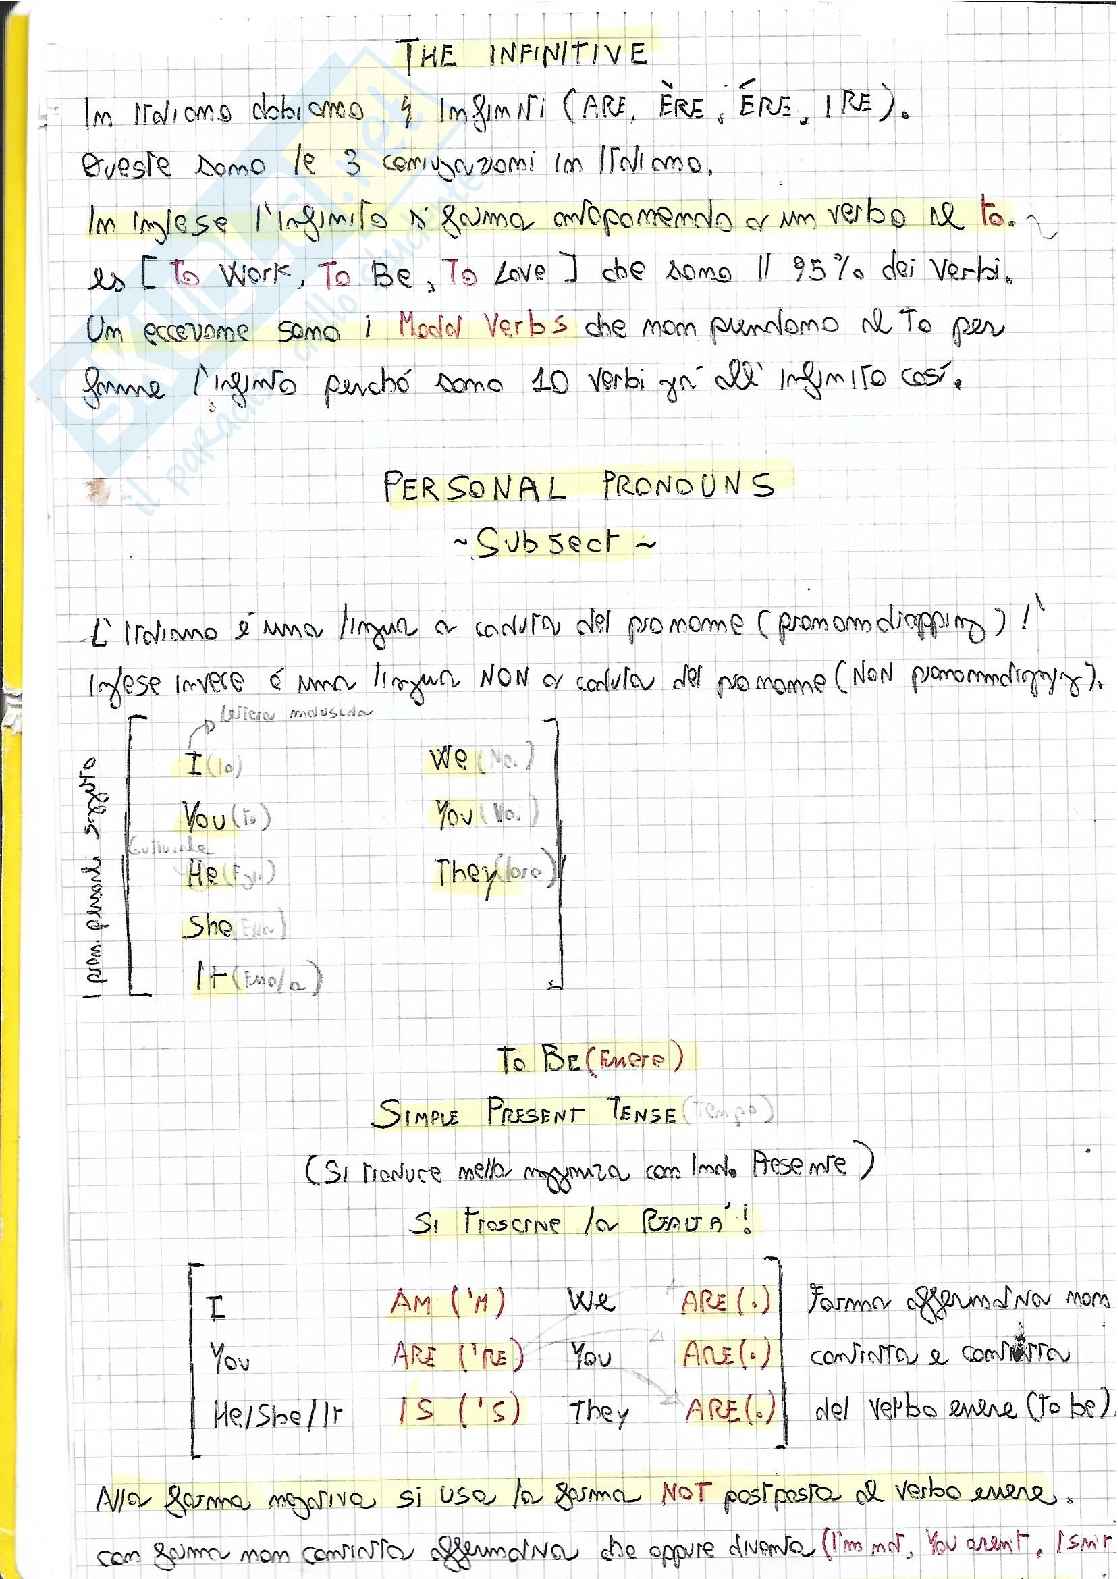 THE INFINITIVE
In Italiano abbiamo 4 Infiniti (ARE, ÈRE, ÉRE, IRE).
Queste sono le 3 coniugazioni in Italiano.
In Inglese l'infinito si forma anteponendo a un verbo il to.
es [To Work, To Be, To Love] che sono il 95% dei Verbi.
Un eccezione sono i Modal Verbs che non prendono il To per
formare l'infinito perché sono 10 verbi già all'infinito così.
PERSONAL PRONOUNS
~Subject~
L'Italiano é una lingua a caduta del pronome (pronoundropping) l'
Inglese invece é una lingua NON a caduta del pronome (NON pronoundropping).
lettera maiuscola
I (Io) We (Noi)
You (Tu) You (Voi)
He (Egli) They (loro)
She (Ella)
It (Esso/a)
I pron. personali soggetto
To BE (Essere)
SIMPLE PRESENT TENSE (Tempo)
(Si traduce nella maggioranza con Indic. Presente)
Si trascrive la REALTÀ!
I AM ('M) We ARE (.) Forma affermativa non
You ARE ('RE) You ARE (.) contratta e contratta
He/She/It IS ('S) They ARE (.) del verbo essere (to be)
Alla forma negativa si usa la forma NOT postposta al verbo essere.
con forma non contratta affermativa che oppure diventa (I'm not, You aren't, Isn't